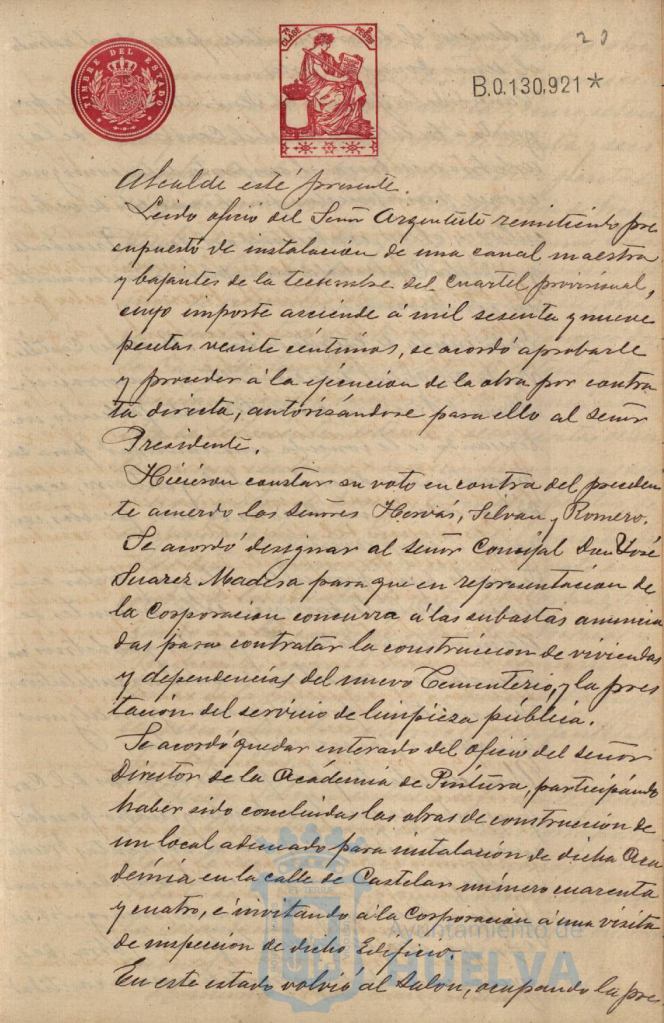 20
TIMBRE DEL ESTADO
CLASE
B.0.130,921*
Alcalde esté presente.
Leido oficio del Señor Arquitecto remitiendo pre
supuesto de instalación de una canal maestra
y bajantes de la techumbre del Cuartel provisional,
cuyo importe asciende á mil sesenta y nueve
pesetas veinte céntimos, se acordó aprobarle
y proceder á la ejecucion de la obra por contra
ta directa, autorisándose para ello al señor
Presidente.
Hicieron constar su voto en contra del preceden
te acuerdo los señores Hervás, Silvan y Romero.
Se acordó designar al señor Concejal Don José
Suarez Madera para que en representacion de
la Corporacion concurra á las subastas anuncia
das para contratar la construccion de viviendas
y dependencias del nuevo Cementerio, y la pres
tación del servicio de limpieza pública.
Se acordó quedar enterado del oficio del señor
Director de la Académia de Pintura, participando
haber sido concluidas las obras de construcción de
un local adecuado para instalación de dicha Aca
démia en la calle de Castelar número cuarenta
y cuatro, é invitando á la Corporacion á una visita
de inspección de dicho Edificio.
En este estado volvió al Salon, ocupando la pre
Ayuntamiento de
HUELVA